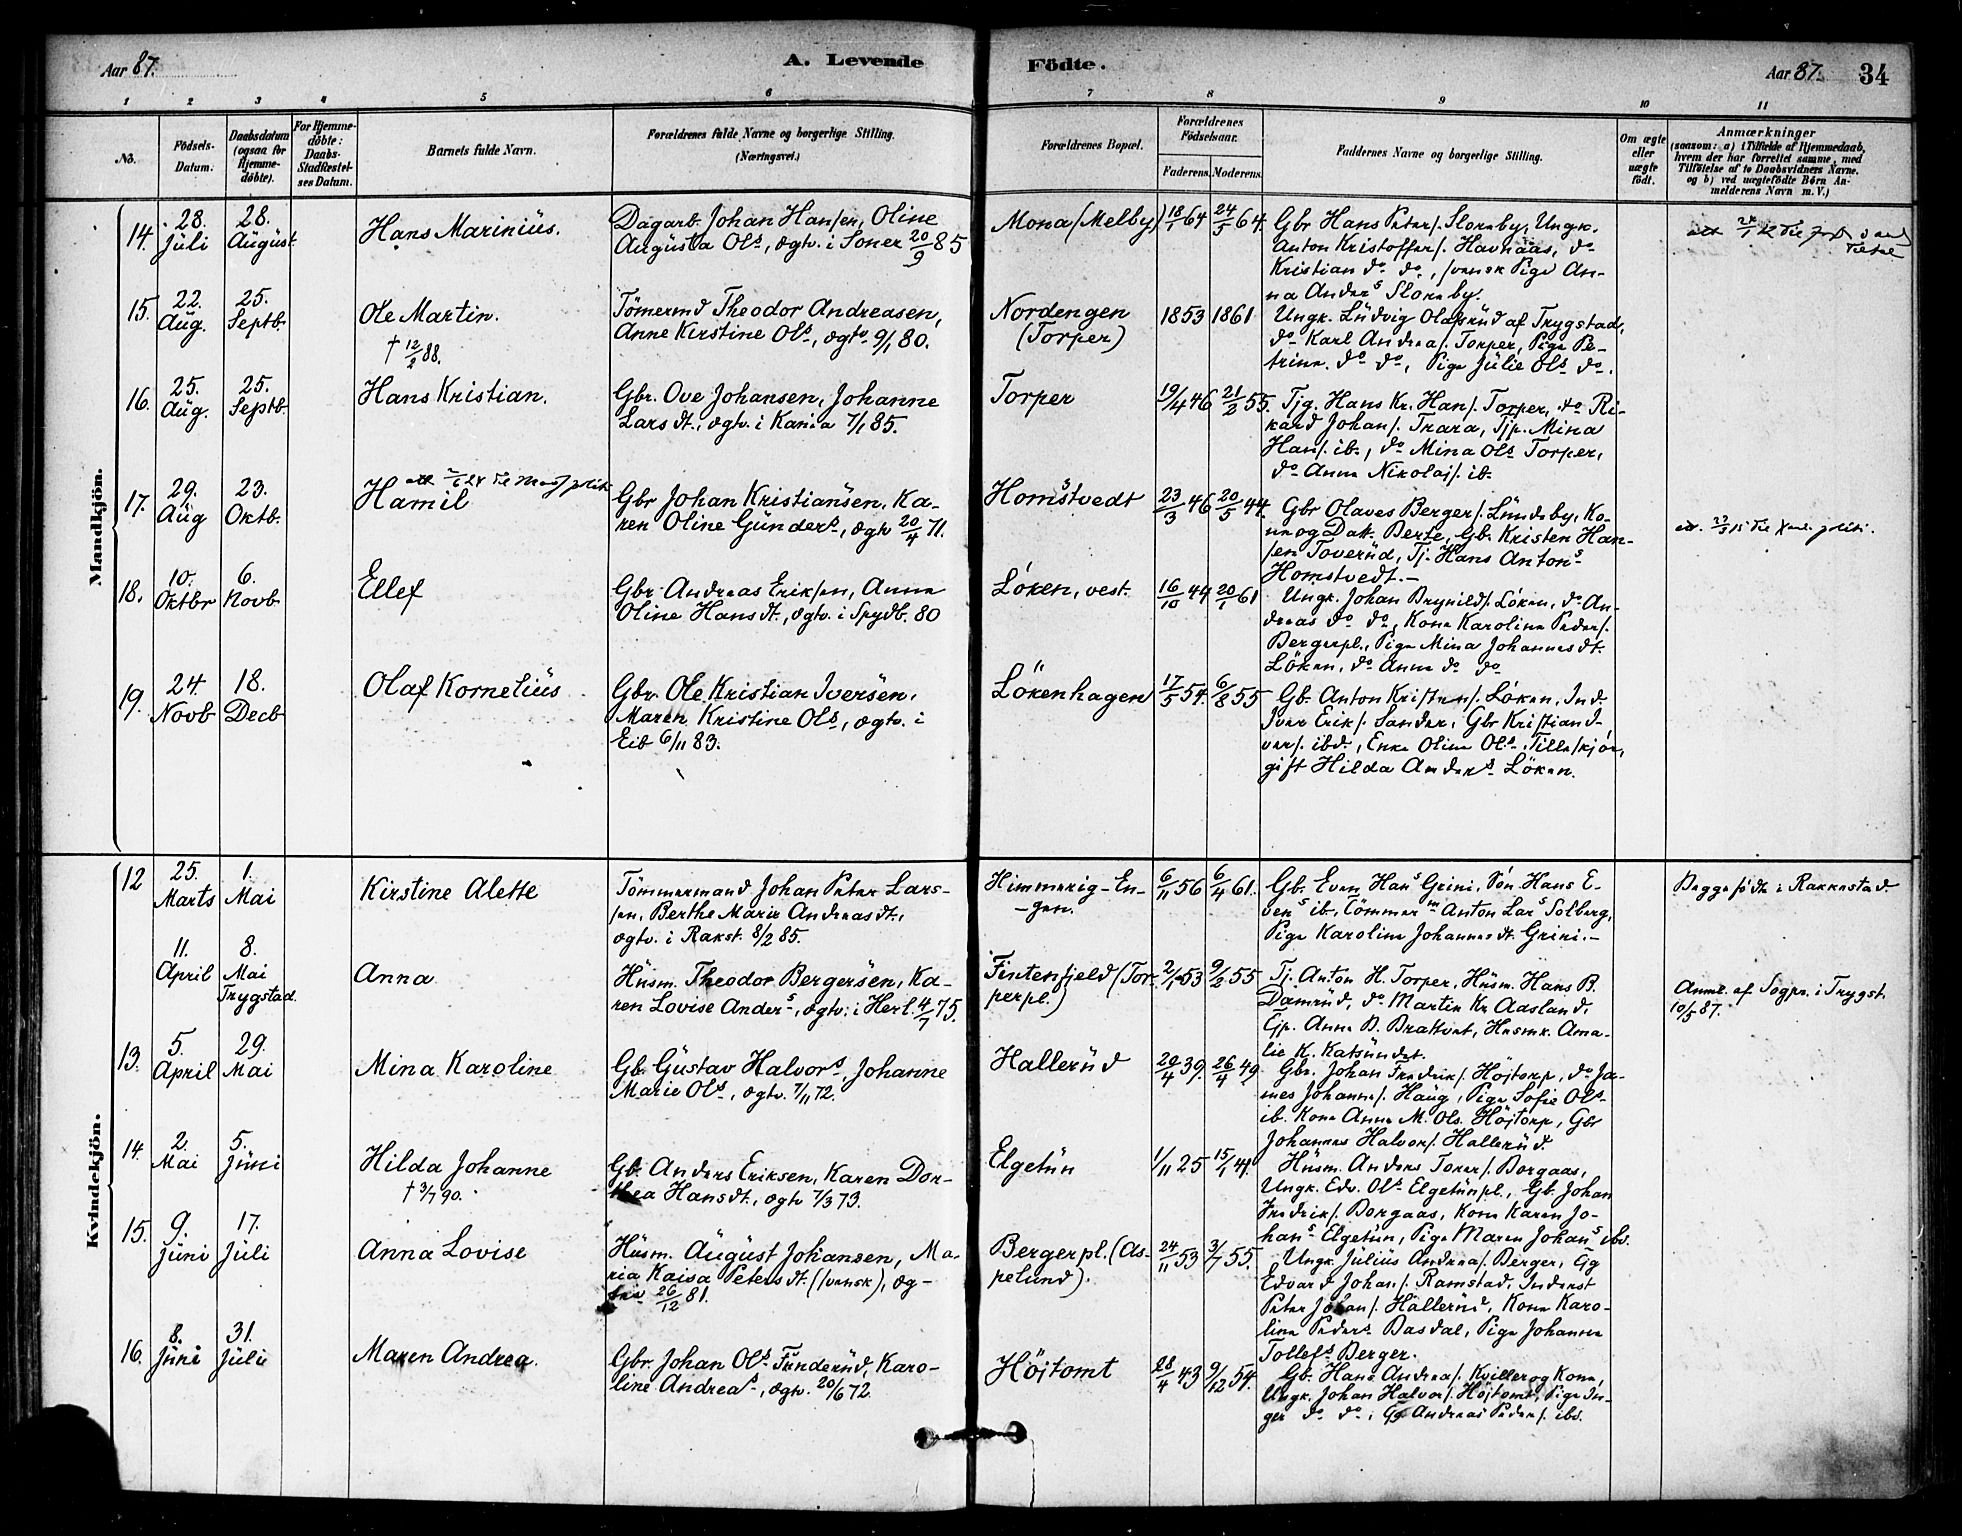 Aar 87.
A. Levende
Födte.
Aar 87.
34
1 2 3 4 5 6 7 8 9 10 11
No.
Födsels-
Datum.
Daabsdatum
(ogsaa for
Hjemme-
döbte).
For Hjemme-
döbte:
Daabs-
Stadfæstel-
ses Datum.
Barnets fulde Navn.
Forældrenes fulde Navne og borgerlige Stilling.
(Næringsvei.)
Forældrenes Bopæl.
Forældrenes
Födselsaar.
Faderens. Moderens.
Faddernes Navne og borgerlige Stilling.
Om ægte
eller
uægte
født.
Anmærkninger
(saasom: a) i Tilfælde af Hjemmedaab,
hvem der har forrettet samme, med
Tilföielse af to Daabsvidners Navne,
og b) ved uægtefödte Börn An-
melderens Navn m. V.)
Mandkjön.
14. 28. Juli
28. August
Hans Marinius.
Dagarb. Johan Hansen, Oline
Augusta Ols., ægtv. i Soner 20/9 85
Mona (Melby)
18/1 64 24/5 64.
Gbr Hans Peters. Sloreby, Ungk.
Anton Kristoffers. Havnaas, do
Kristian do do, svensk Pige An-
na Anders Sloreby.
15. 22. Aug.
25. Septb.
Ole Martin.
† 12/2 88.
Tömermd Theodor Andreasen,
Anne Kirstine Ols., ægtv. 9/1 80.
Nordengen
(Torper)
1853 1861
Ungk. Ludvig Olafsrud af Trygstad,
do Karl Andreas. Torper, Pige Pe-
trine do do, Pige Julie Ols do.
16. 25. Aug.
25. Septb.
Hans Kristian.
Gbr. Ove Johansen, Johanne
Larsdt., ægtv. i Kania 7/1 85.
Torper
19/4 46 21/2 55.
Tjg. Hans Kr. Hans. Torper, do Ri-
kard Johans. Trara, Tjp. Mina
Hans. ib., do Mina Ols Torper,
do Anna Nikolais. ib.
17. 29. Aug
23. Oktb.
Hamil
Gbr Johan Kristiansen, Ka-
ren Oline Gunders., ægtv 20/4 71.
Homstvedt
23/3 46 20/5 44.
Gbr Olaves Bergers. Lundeby, Ko-
ne og Datt. Berte, Gb. Kristen Han-
sen Toverud, Tj. Hans Antons
Homstvedt.-
18. 10. Oktbr
6. Novb.
Ellef
Gbr Andreas Eriksen, Anna
Oline Hansdt., ægtv. i Spydb. 80
Löken, vest.
16/10 44 20/1 61
Ungk. Johan Brynilds. Löken, do An-
dreas do do, Kone Karoline Peders.
Bergerpl., Pige Mina Johannesdt.
Löken, do Anna do do
19. 24. Novb
18. Decb
Olaf Kornelius
Gbr. Ole Kristian Iversen,
Maren Kristine Ols., ægtv. i
Eib 6/11 83.
Lökenhagen
17/5 54. 6/8 55
Gb. Anton Kristens. Löken, Ind.
Iver Eriks. Sander, Gbr Kristian I-
vers. ibd., Enke Oline Ols.
gift Hilda Anders. Löken.
Kvindekjön.
12 25. Marts
1. Mai
Kirstine Alette
Tömmermand Johan Peter Lars-
sen, Berthe Marie Andreasdt.,
ægtv. i Rakst. 8/2 85.
Himmerig-En-
-gen.
6/11 56 6/4 61.
Gb. Even Hans Grini, Sön Hans E-
vens ib, Tömmerm Anton Lars Solberg,
Pige Karoline Johannesdt. Grini.-
Begge födte i Rakkestad
11. April
8. Mai
Trygstad
Anna
Husm. Theodor Bergersen, Ka-
ren Lovise Anders., ægtv. i Herl. 4/7 75.
Fintenfjeld (Tor-
perpl.)
2/1 53 9/2 55
Tj. Anton H. Torper, Husm. Hans B.
Damrud, do Martin Kr Aasland,
Tjp. Anne B. Brattvet, Husmk. Ama-
lie K. Katsundet.
Anml. af Sogpr. i Trygst.
10/5 87.
13. 5. April
29. Mai
Mina Karoline
Gb. Gustav Halvors., Johanne
Marie Ols., ægtv. 7/11 72.
Hallerud
20/4 39. 26/4 49
Gbr. Johan Fredriks. Höjtorp, do Jo-
nes Johannes. Haug, Pige Sofie Ols
ib. Kone Anne M. Ols. Höjtorp, Gbr
Johannes Halvors. Hallerud.
14. 2. Mai
5. Juni
Hilda Johanne
† 3/7 90.
Gb. Anders Eriksen, Karen Dor-
thea Hansdt., ægtv 7/3 73.
Elgetun
1/11 25 15/1 41.
Husm. Anders Tores. Borgaas,
Ungk. Edv. Ols Elgetunpl., Gb. Johan
Fredriks. Borgaas, Kone Karen Jo-
hans. Elgetun, Pige Maren Johans ibd.
15. 9. Juni
17. Juli
Anna Lovise
Husm. August Johansen, Ma-
ria Kaisa Petersdt. (svensk), æg-
tev 26/12 81.
Bergerpl. (As-
pelund).
24/11 53 3/7 55.
Ungk. Julius Andreas. Berger, Gg
Edvard Johans. Ramstad, Inderst
Peter Johans. Hallerud, Kone Karo-
line Peders Basdal, Pige Johanne
Tollefs. Berger.
16. 8. Juni
31. Juli
Maren Andrea.
Gbr. Johan Ols. Funderud, Karo-
line Andreas., ægtv. 20/6 72
Höjtomt
28/4 43 9/12 54.
Gb. Hans Andreas. Kviller og Kone,
Ungk. Johan Halvors. Höjtomt, Pige In-
ger do do, Gg Andreas Peders. ibd.